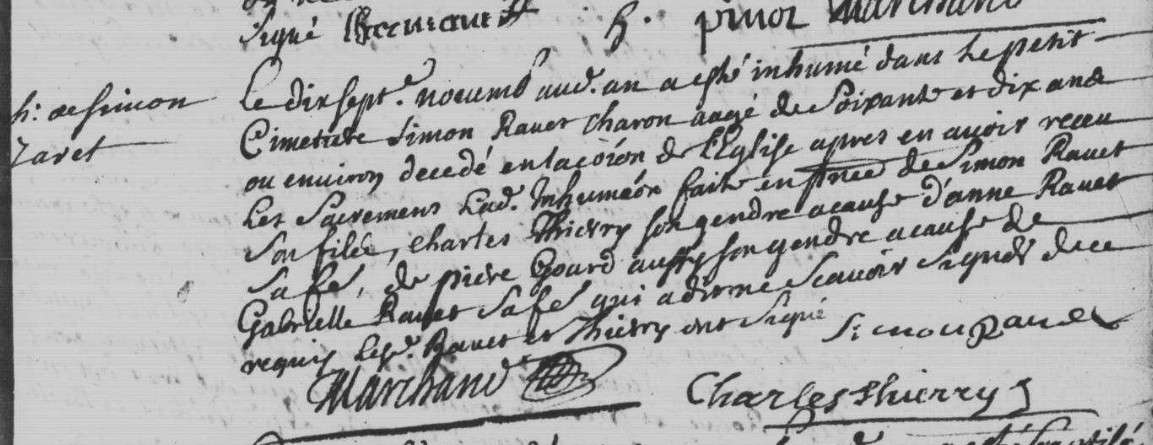 Signé
h. pinot Marchand
h: de Simon
Zavet
Le dixsept.e novemb aud. an a esté inhumé dans le petit
Cimetiere Simon Ravet charon aagé de Soixante et dix ans
ou environ decedé en la cõion de l'Eglise apres en avoir receu
les Sacremens Lad. Inhumãon faite en pñce de Simon Ravet
son filz, Charles Thierry son gendre a cause d'anne Ravet
sa fe, de piere Gouard aussy son gendre a cause de
Gabrielle Ravet sa fe qui a dit ne scavoir signer de ce
requis lesd. Ravet et Thierry ont signé
Simon Ravet
Marchand
Charles thierry